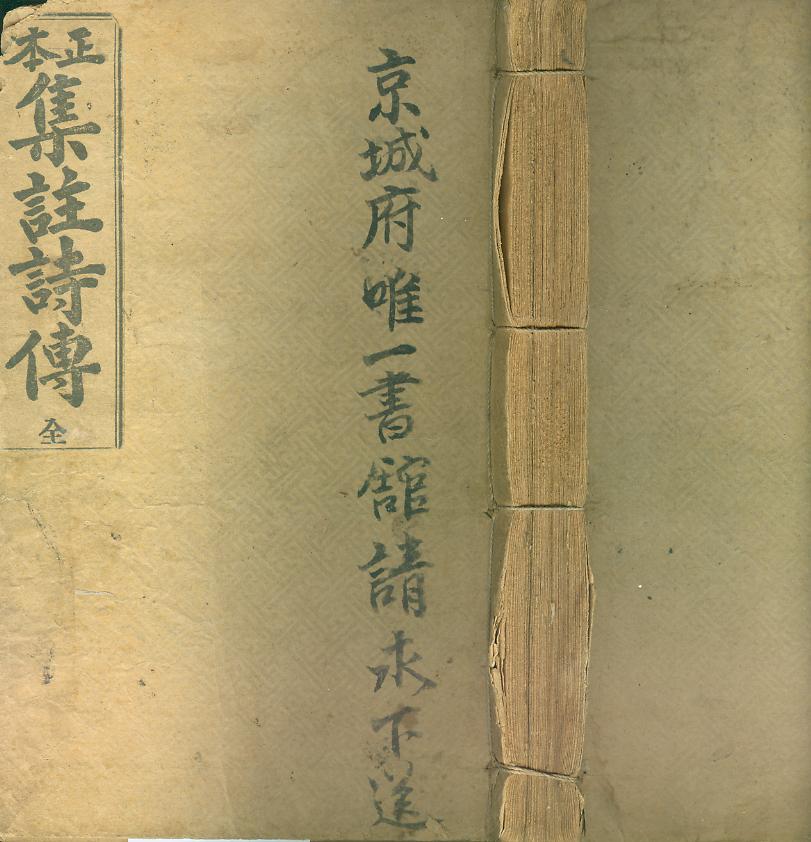 京城府唯一書舘請求下送
正本
集註詩傳
全